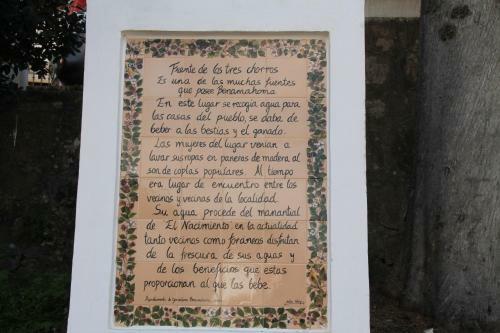 Fuente de los tres chorros
Es una de las muchas fuentes
que posee Benamahoma.
En este lugar se recogía agua para
las casas del pueblo, se daba de
beber a las bestias y el ganado.
Las mujeres del lugar venían a
lavar sus ropas en paneras de madera al
son de coplas populares. Al tiempo
era lugar de encuentro entre los
vecinos y vecinas de la localidad.
Su agua procede del manantial
de "El Nacimiento" en la actualidad
tanto vecinos como foráneos disfrutan
de la frescura de sus aguas y
de los beneficios que estas
proporcionan al que las bebe.
Ayuntamiento de Grazalema Benamahoma